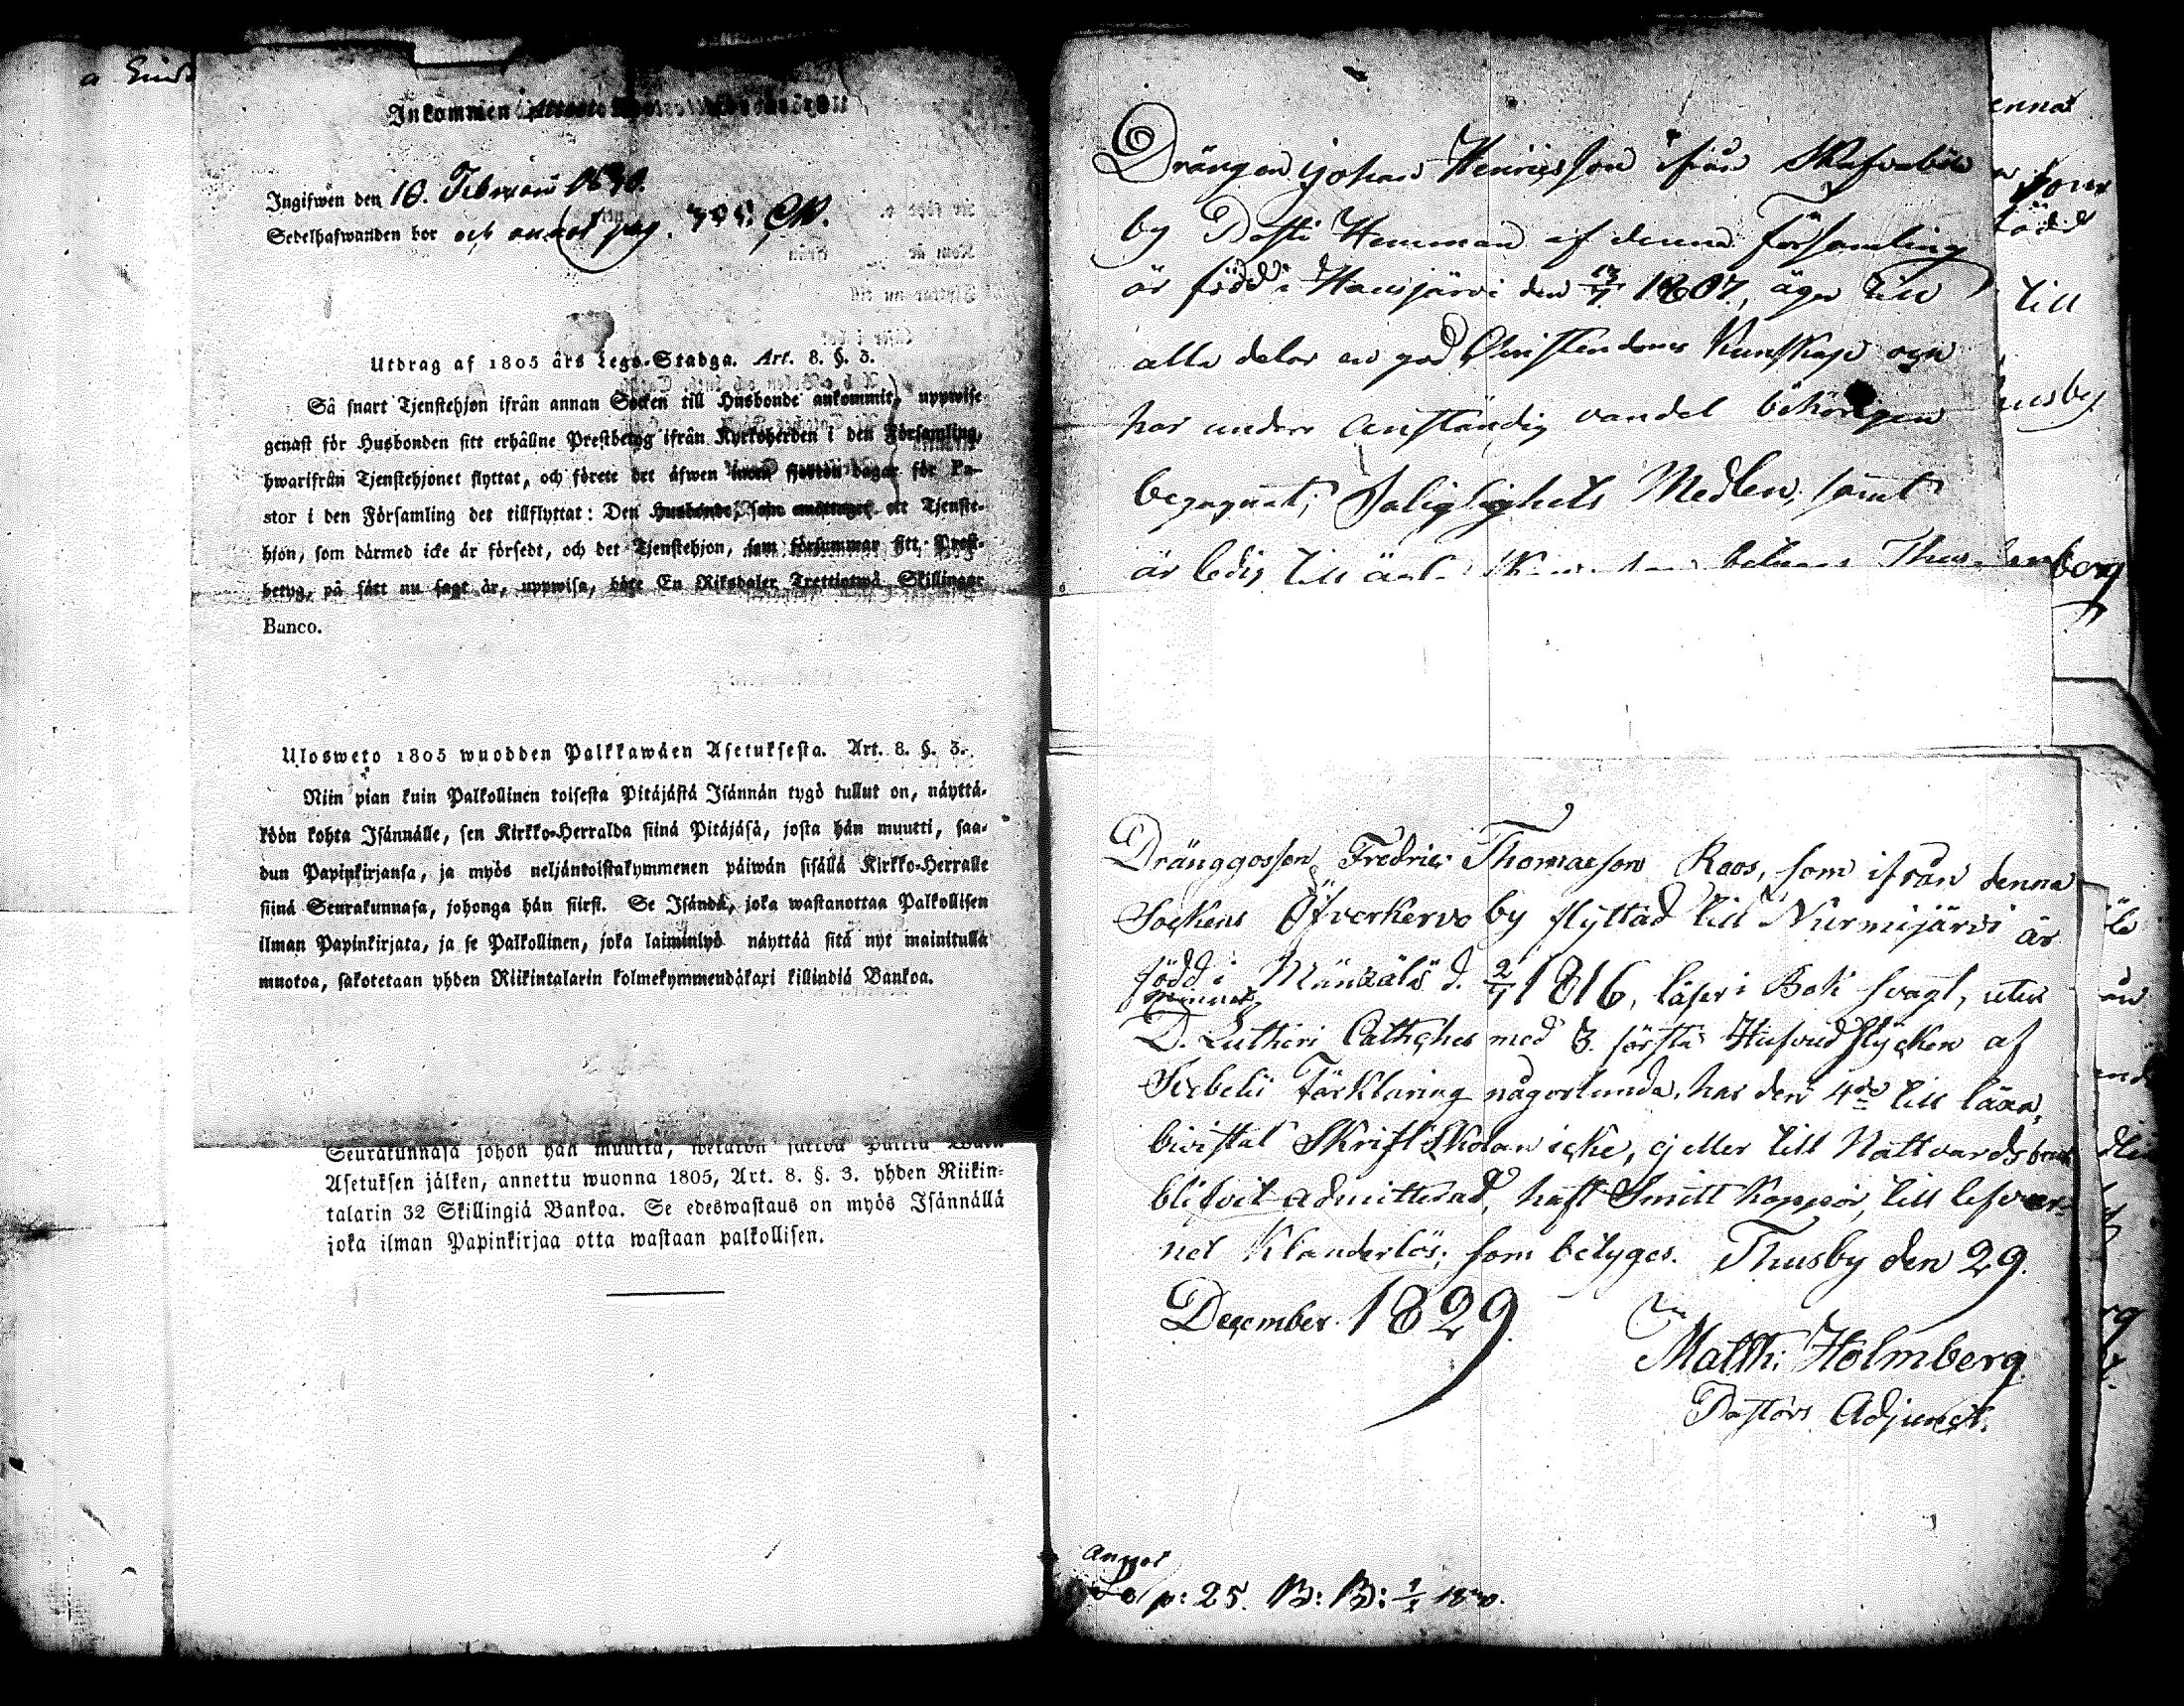 a
Inkommen
Ingifwen den 18. Februarii 1830.
Sedelhafwanden bor och annot pag. 795. CW.
Utdrag af 1805 års Lego-Stadga. Art. 8. §. 3.
Så snart Tjenstehjon ifrån annan Socken till Husbonde ankommit, uppwise
genast för Husbonden sitt erhållne Prestbetyg ifrån Kyrkoherden i den Församling,
hwarifrån Tjenstehjonet flyttat, och förete det äfwen inom fjorton dagar för Pa-
stor i den Församling det tillflyttat: Den Husbonde, som emottager ett Tjenste-
hjon, som därmed icke är försedt, och det Tjenstehjon, som försummar sitt Prest-
betyg, på sätt nu sagt är, uppwisa, böte En Riksdaler Trettiotwå Skillingar
Banco.
Ulosweto 1805 wuodden Palkkawäen Asetuksesta. Art. 8. §. 3.
Niin pian kuin Palkollinen toisesta Pitäjästä Isännän tygö tullut on, näyttä-
köön kohta Isännälle, sen Kirkko-Herralda siinä Pitäjäsä, josta hän muutti, saa-
dun Papinkirjansa, ja myös neljäntoistakymmenen päiwän sisällä Kirkko-Herralle
siinä Seurakunnasa, johonga hän siirsi. Se Isändä, joka wastanottaa Palkollisen
ilman Papinkirjata, ja se Palkollinen, joka laiminlyö näyttää sitä nyt mainitulla
muotoa, sakotetaan yhden Riikintalarin kolmekymmendäkaxi killindiä Bankoa.
Seurakunnasa johon hän muutta,
Asetuksen jälken, annettu wuonna 1805, Art. 8. §. 3. yhden Riikin-
talarin 32 Skillingiä Bankoa. Se edeswastaus on myös Isännällä
joka ilman Papinkirjaa otta wastaan palkollisen.
Drängen Johan Henricsson ifrån Skafvaböle
by Dosti Hemman af denna Församling
är född i Hausjärvi den 13/7 1807, äger till
alla delar en god Christendoms Kunskap ogn
har under anständig vandel behörigen
begagnat Salighets Medlen, samt
är ledig till
Dränggossen Fredric Thomasson Roos, som ifrån denna
Sockens Öfverkervo by flyttad till Nurmijärvi är
född i Mänzälä d. 2/7 1816, läser i Bok svagt, utur
minnet
D. Lutheri Catheches med 3. första Hufvudstycken af
Svebelii Förklaring någorlunda, har den 4de till lära,
bivistat Skriftskolan icke, ej eller till Nattvardsbruk
blifvit admitterad, haft Smitt Koppor, till lefver-
net Klanderlös; som betyges. Thusby den 29.
December 1829.
Matth: Holmberg
Pastors Adjunct.
annot
p: 25. B: B: 1/1 1830.
ennat
född
till
usby
berg